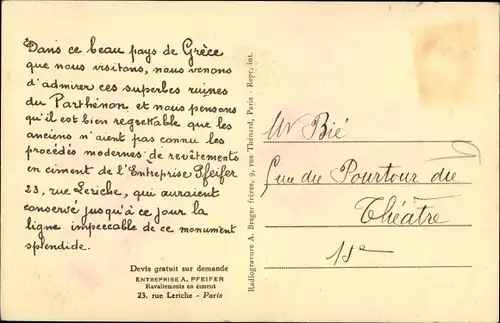 Dans ce beau pays de Grèce
que nous visitons, nous venons
d'admirer ces superbes ruines
du Parthénon et nous pensons
qu'il est bien regrettable que les
anciens n'aient pas connu les
procédés modernes de revêtements
en ciment de l'Entreprise Pfeifer
23, rue Leriche, qui auraient
conservé jusqu'à ce jour la
ligne impeccable de ce monument
splendide.
Devis gratuit sur demande
ENTREPRISE A. PFEIFER
Ravallements en ciment
23, rue Leriche - Paris
Radiogravure A. Breger frères, 9, rue Thénard, Paris - Repr. int.
Mr Bié
rue du Pourtour du
Théâtre
15e